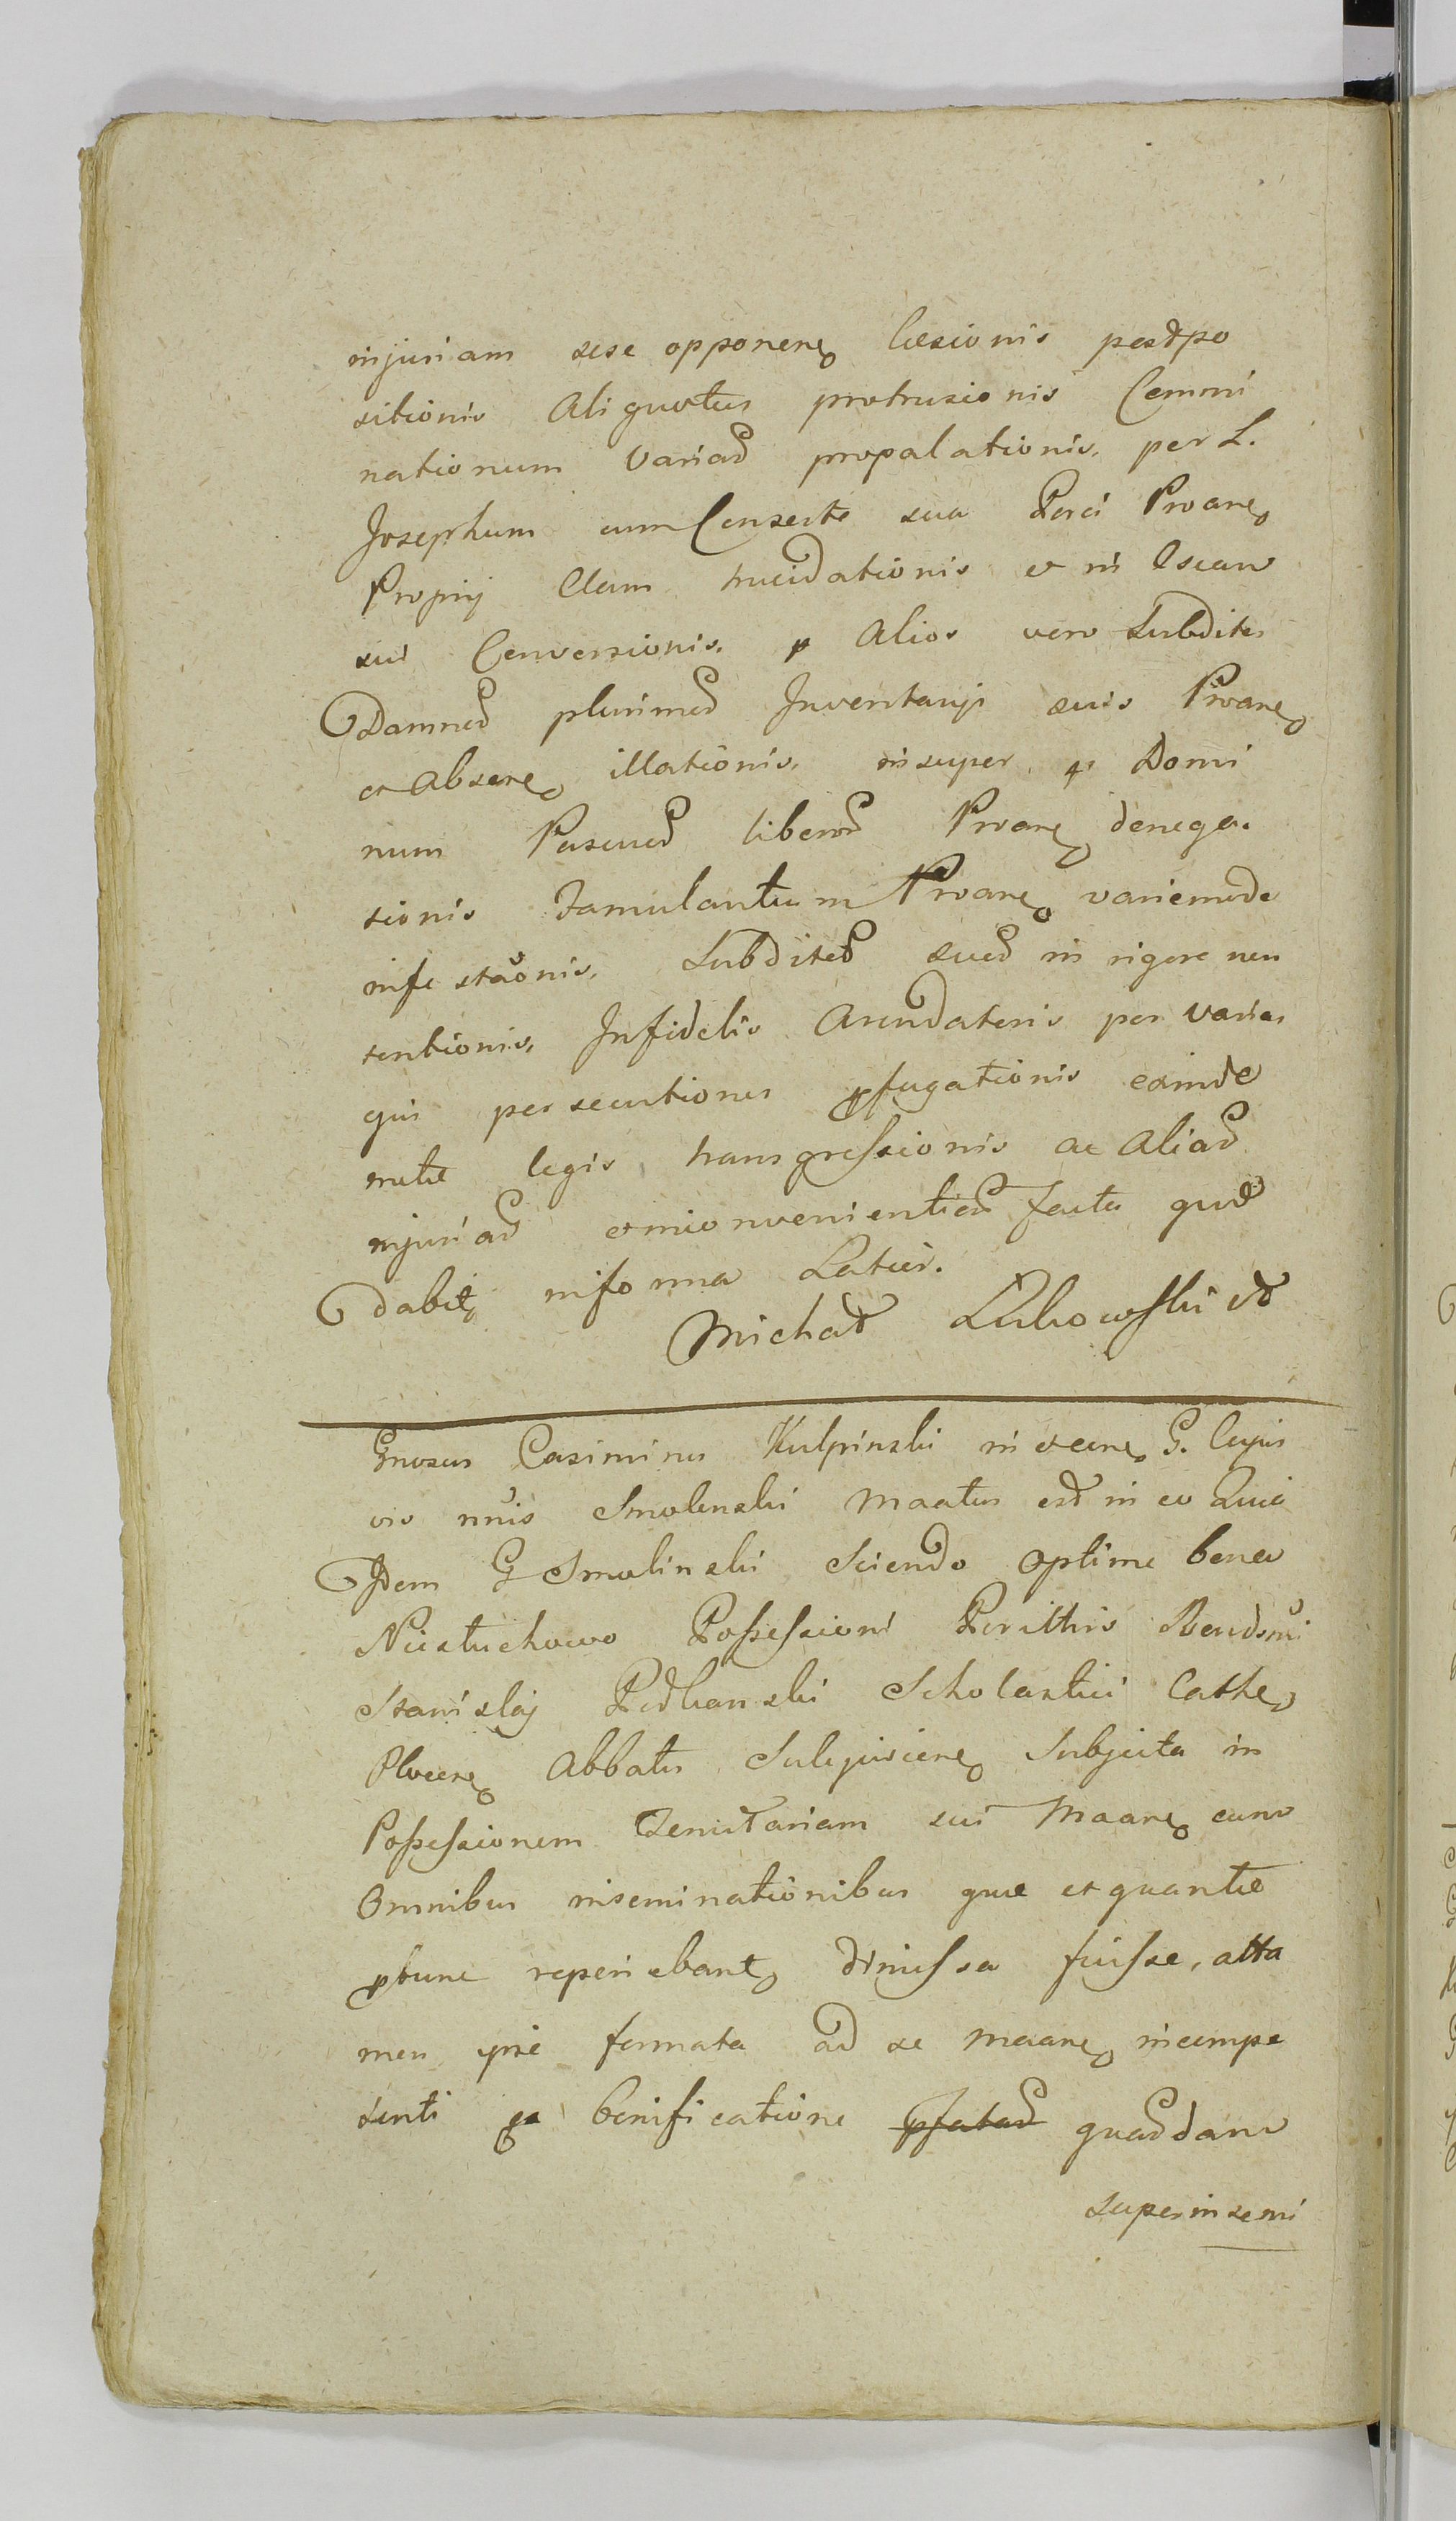 injuriam sese opponen læsionis postpo
sitionis Aliquotus protrusionis Commi
nationum variar propalationis, per L.
Josephum cum Consorte sua Porci Proane
Proprij Clam trucidationis et in Escam
sui Conversionis. p Alios vero Subditos
Damnor plurimor Inventarij suis Proane
et absene illationis, insuper p Domi
num Pascuor liberor Proane denega
sionis Famulantium Proane variemode
infestaonis. Subditor suor in rigore non
tentionis, Infidelis Arendatoris per varias
ejus persecutiones pfugationis eximde
mulæ legis transgressionis ac Aliar
injuriar et inconvenientiar facta quo
dabit informa Latior.
Michał Lukowski
Gnosus Casimirus Kulpinski in occne G. Cujus
vis nnis Smolenski Maatus est in eo Quia
Idem G Smolinski Sciendo optime bona
Niestuchowo Possessioni Perillris Rendsmi
Stanislaj Podhanski Scholastici Cathe
Plocen Abbatis Sulejovien Subjecta in
Possessionem Tenutariam sui Maane cum
Omnibus inseminationibus quæ et quantæ
ptunc reperiebant dimissa fuisse, atta
men ipse formata ad se maane incompe
tenti pa bonificatione pfatar quardam
superinsemi